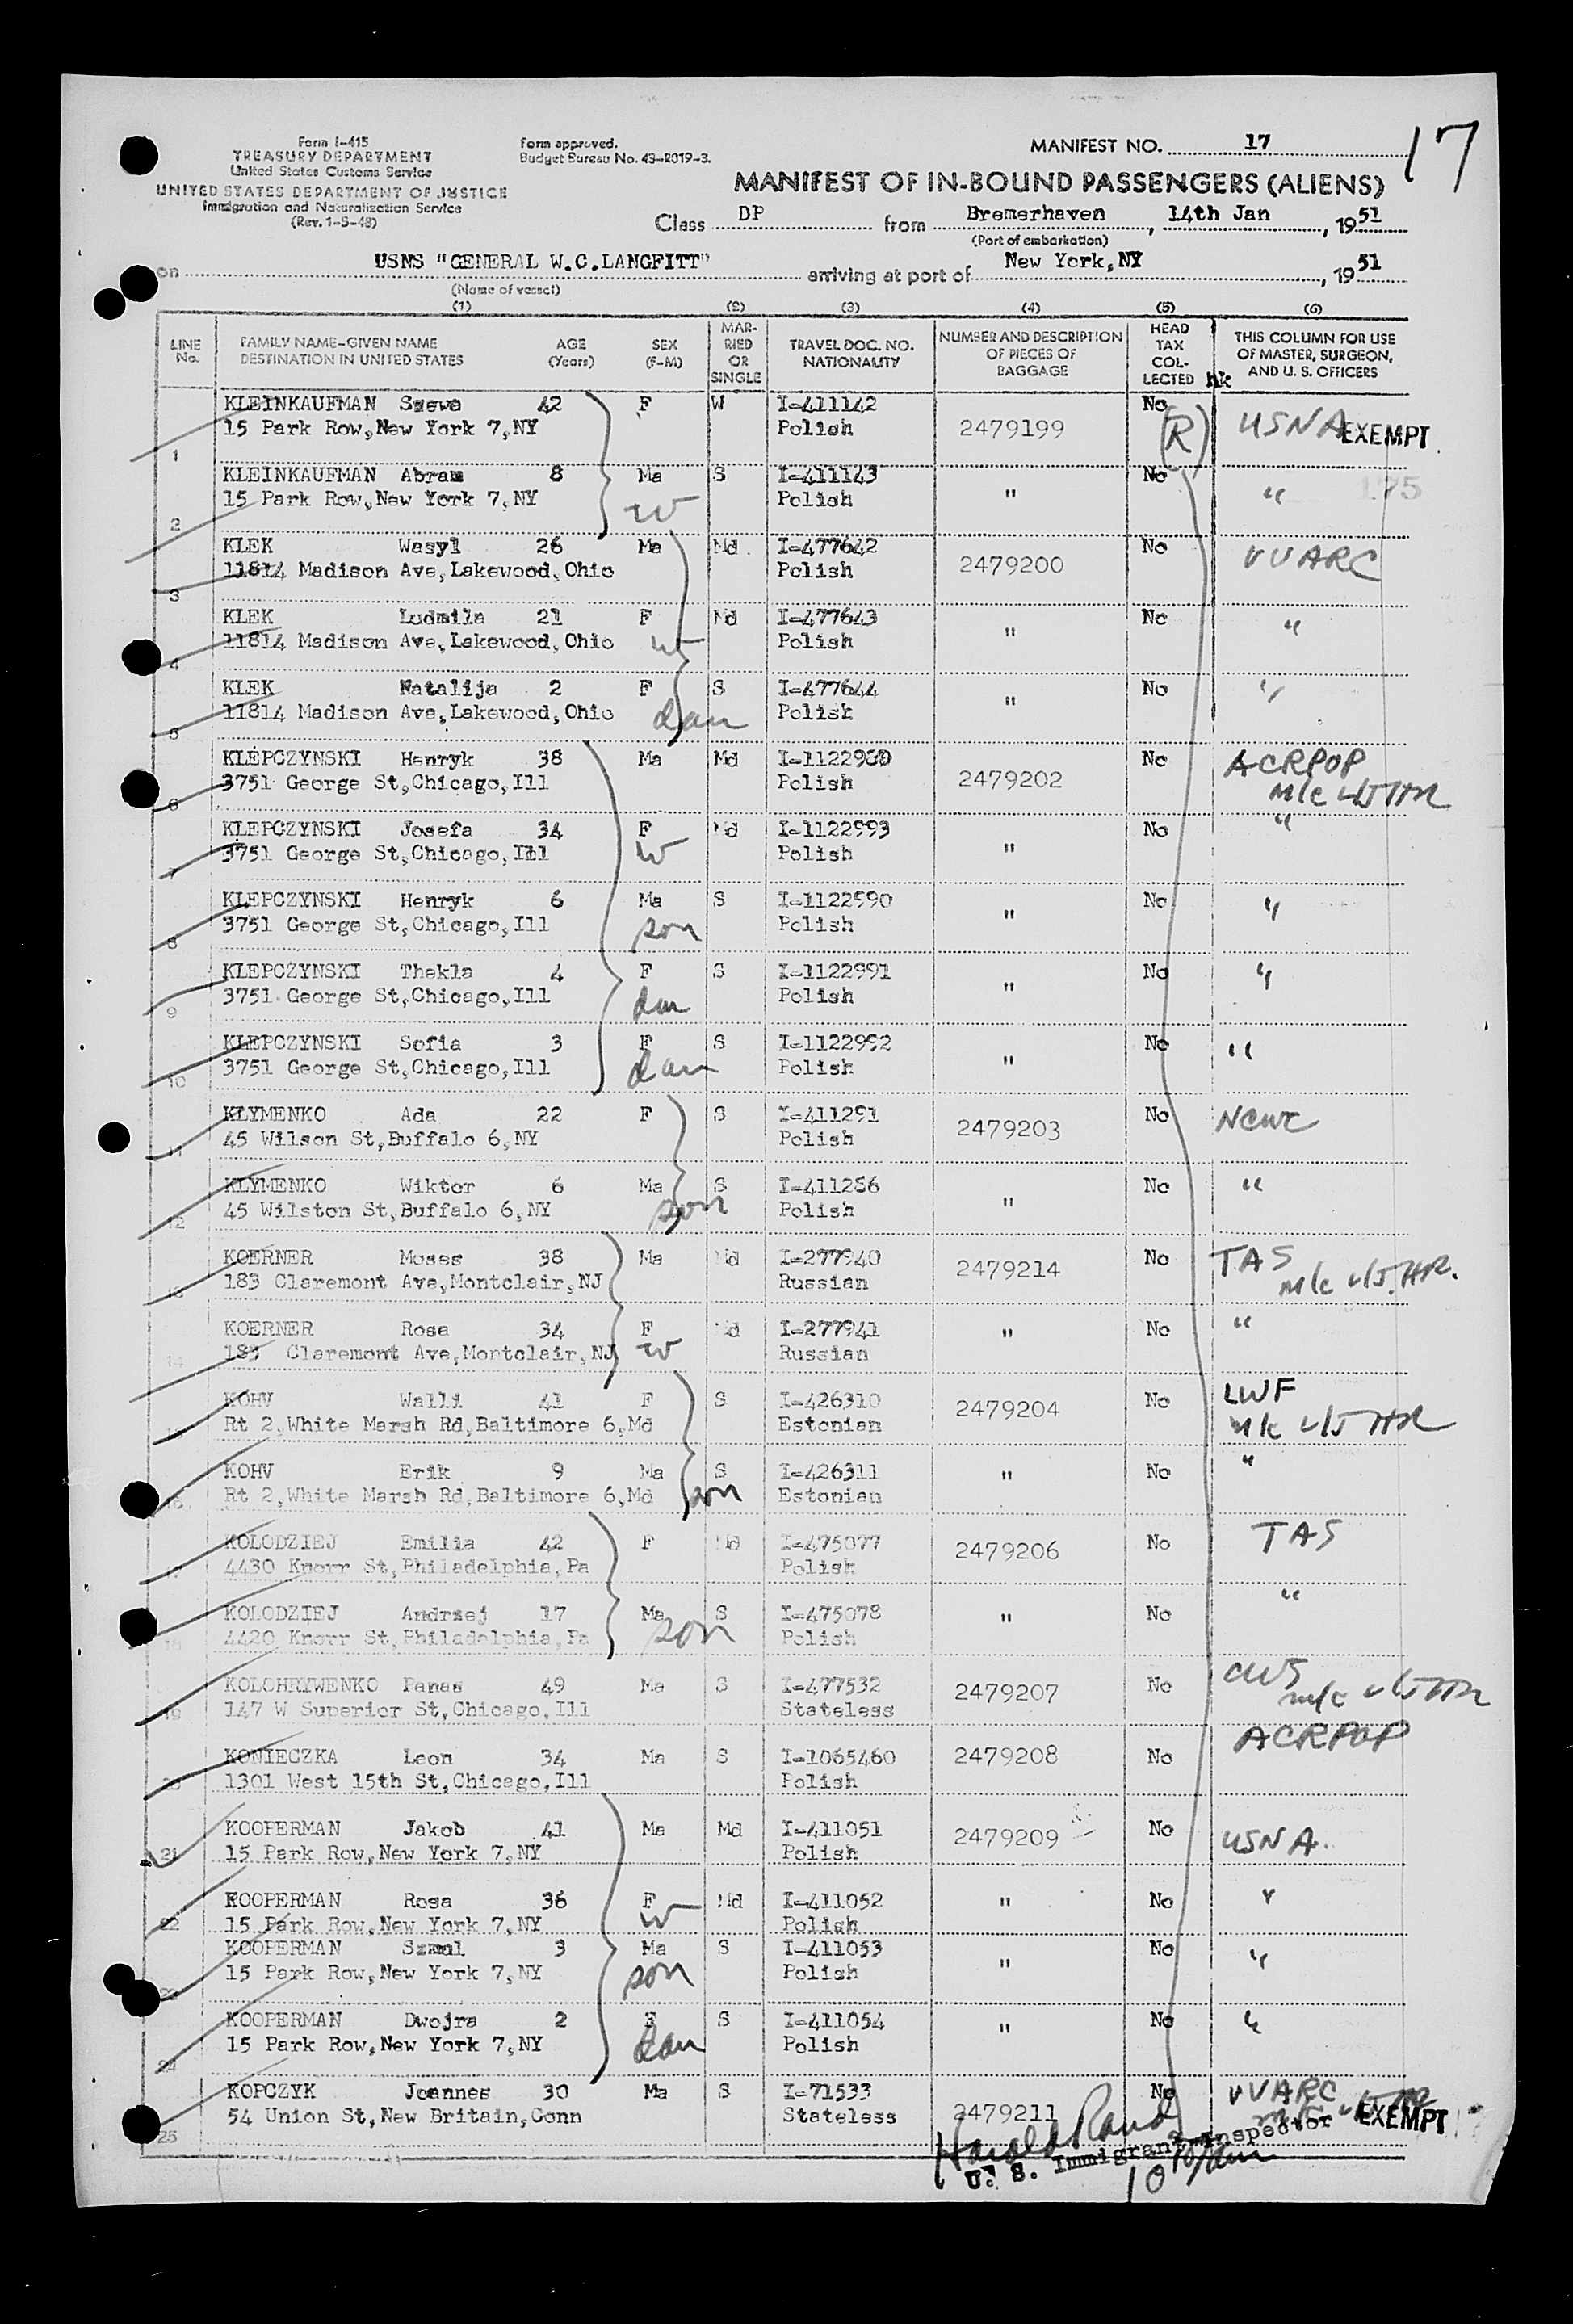 Form I-415
TREASURY DEPARTMENT
United States Customs Service
UNITED STATES DEPARTMENT OF JUSTICE
Immigration and Naturalization Service
(Rev. 1-5-48)
Form approved.
Budget Bureau No. 43-R019-3.
MANIFEST NO. 17
17
MANIFEST OF IN-BOUND PASSENGERS (ALIENS)
Class DP from Bremerhaven, 14th Jan, 1951
(Port of embarkation)
on USNS "GENERAL W.C.LANGFITT" arriving at port of New York,NY, 1951
(Name of vessel)
(1) (2) (3) (4) (5) (6)
LINE No. FAMILY NAME-GIVEN NAME DESTINATION IN UNITED STATES AGE (Years) SEX (F-M) MARRIED OR SINGLE TRAVEL DOC. NO. NATIONALITY NUMBER AND DESCRIPTION OF PIECES OF BAGGAGE HEAD TAX COLLECTED THIS COLUMN FOR USE OF MASTER, SURGEON, AND U. S. OFFICERS
hk
KLEINKAUFMAN Szewa 42 F W I-411142 No (R) USNA EXEMPT
1 15 Park Row,New York 7,NY Polish 2479199
KLEINKAUFMAN Abram 8 Ma S I-411143 No " 175
2 15 Park Row,New York 7,NY w Polish "
KLEK Wasyl 26 Ma Md I-477642 No VVARC
3 11814 Madison Ave,Lakewood,Ohio Polish 2479200
KLEK Ludmila 21 F Md I-477643 No "
4 11814 Madison Ave,Lakewood,Ohio w Polish "
KLEK Natalija 2 F S I-477644 No "
5 11814 Madison Ave,Lakewood,Ohio dau Polish "
KLEPCZYNSKI Henryk 38 Ma Md I-1122989 No ACRPOP
6 3751 George St,Chicago,Ill Polish 2479202
KLEPCZYNSKI Josefa 34 F Md I-1122993 No "
7 3751 George St,Chicago,Ill w Polish "
KLEPCZYNSKI Henryk 6 Ma S I-1122990 No "
8 3751 George St,Chicago,Ill son Polish "
KLEPCZYNSKI Thekla 4 F S I-1122991 No "
9 3751 George St,Chicago,Ill dau Polish "
KLEPCZYNSKI Sofia 3 F S I-1122992 No "
10 3751 George St,Chicago,Ill dau Polish "
KLYMENKO Ada 22 F S I-411291 No NCWC
11 45 Wilson St,Buffalo 6,NY Polish 2479203
KLYMENKO Wiktor 6 Ma S I-411286 No "
12 45 Wilston St,Buffalo 6,NY son Polish "
KOERNER Moses 38 Ma Md I-277940 No TAS
13 183 Claremont Ave,Montclair,NJ Russian 2479214
KOERNER Rosa 34 F Md I-277941 No "
14 183 Claremont Ave,Montclair,NJ w Russian "
KOHV Walli 41 F S I-426310 No LWF
15 Rt 2,White Marsh Rd,Baltimore 6,Md Estonian 2479204
KOHV Erik 9 Ma S I-426311 No "
16 Rt 2,White Marsh Rd,Baltimore 6,Md son Estonian "
KOLODZIEJ Emilia 42 F Md I-475077 No TAS
17 4430 Knorr St,Philadelphia,Pa Polish 2479206
KOLODZIEJ Andrzej 17 Ma S I-475078 No "
18 4420 Knorr St,Philadelphia,Pa son Polish "
KOLOHRYWENKO Panas 49 Ma S I-477532 No CWS
19 147 W Superior St,Chicago,Ill Stateless 2479207
KONIECZKA Leon 34 Ma S I-1065460 2479208 No ACRPOP
20 1301 West 15th St,Chicago,Ill Polish
KOOPERMAN Jakob 41 Ma Md I-411051 No USNA.
21 15 Park Row,New York 7,NY Polish 2479209
KOOPERMAN Rosa 36 F Md I-411052 " No "
22 15 Park Row,New York 7,NY w Polish
KOOPERMAN Szmul 3 Ma S I-411053 No "
23 15 Park Row,New York 7,NY son Polish "
KOOPERMAN Dwojra 2 F S I-411054 No "
24 15 Park Row,New York 7,NY dau Polish "
KOPCZYK Joannes 30 Ma S I-71533 No VVARC
54 Union St,New Britain,Conn Stateless 2479211 EXEMPT
25
Harold Rand
U. S. Immigrant Inspector